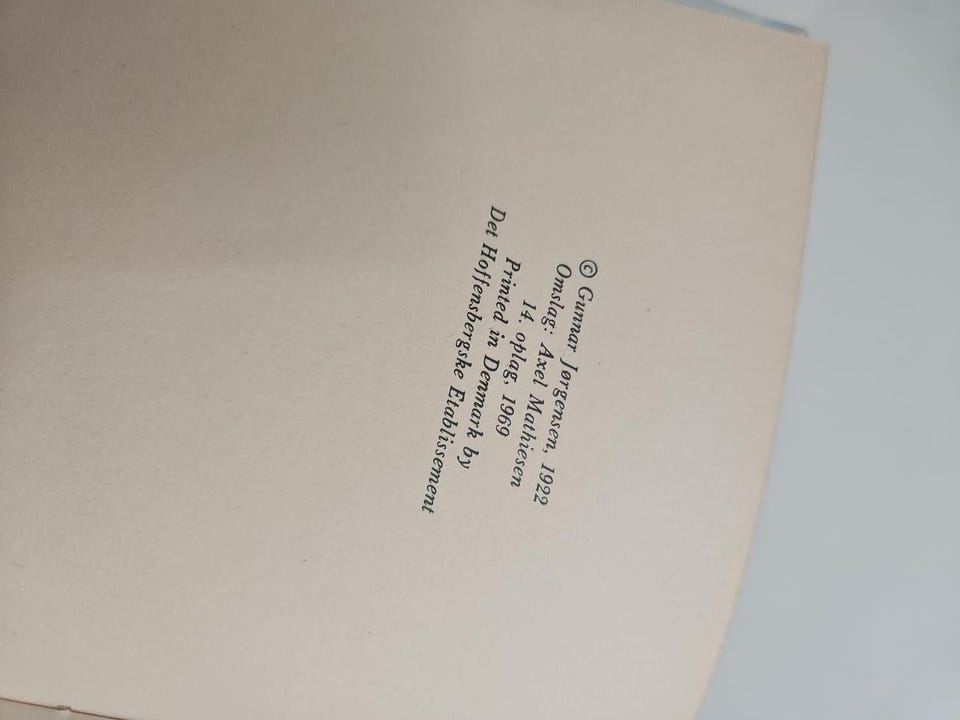 © Gunnar Jørgensen, 1922
Omslag: Axel Mathiesen
14. oplag, 1969
Printed in Denmark by
Det Hoffensbergske Etablissement